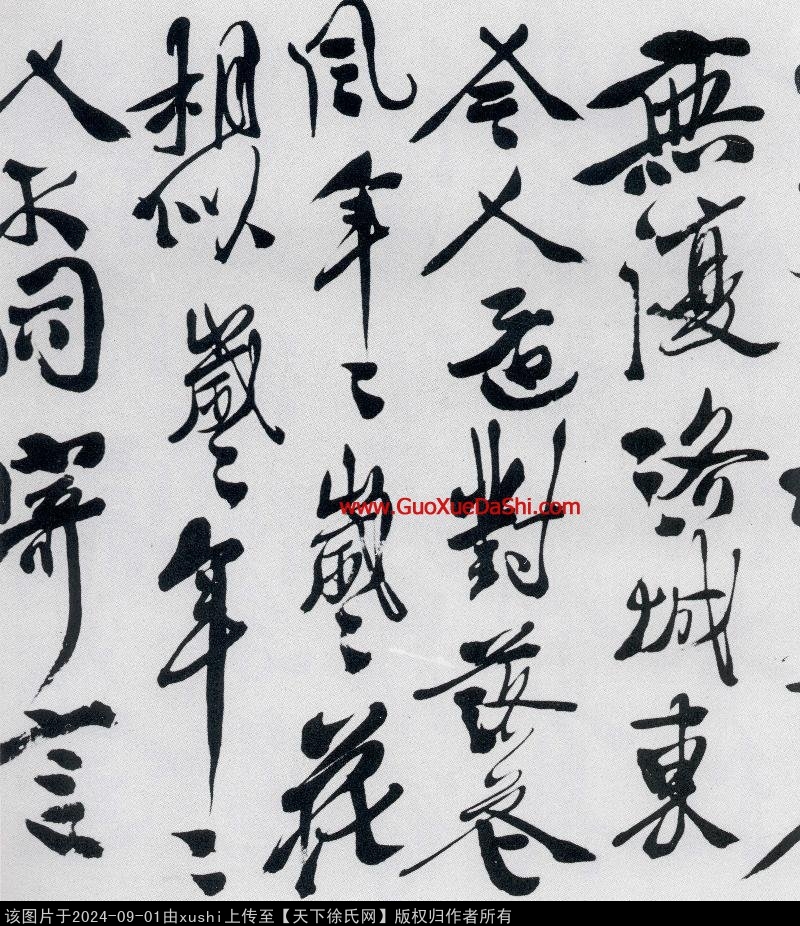 無復洛城東
今人還對落花
風年〻歲〻花
相似歲〻年〻
人不同寄言
www.GuoXueDaShi.com
该图片于2024-09-01由xushi上传至【天下徐氏网】版权归作者所有